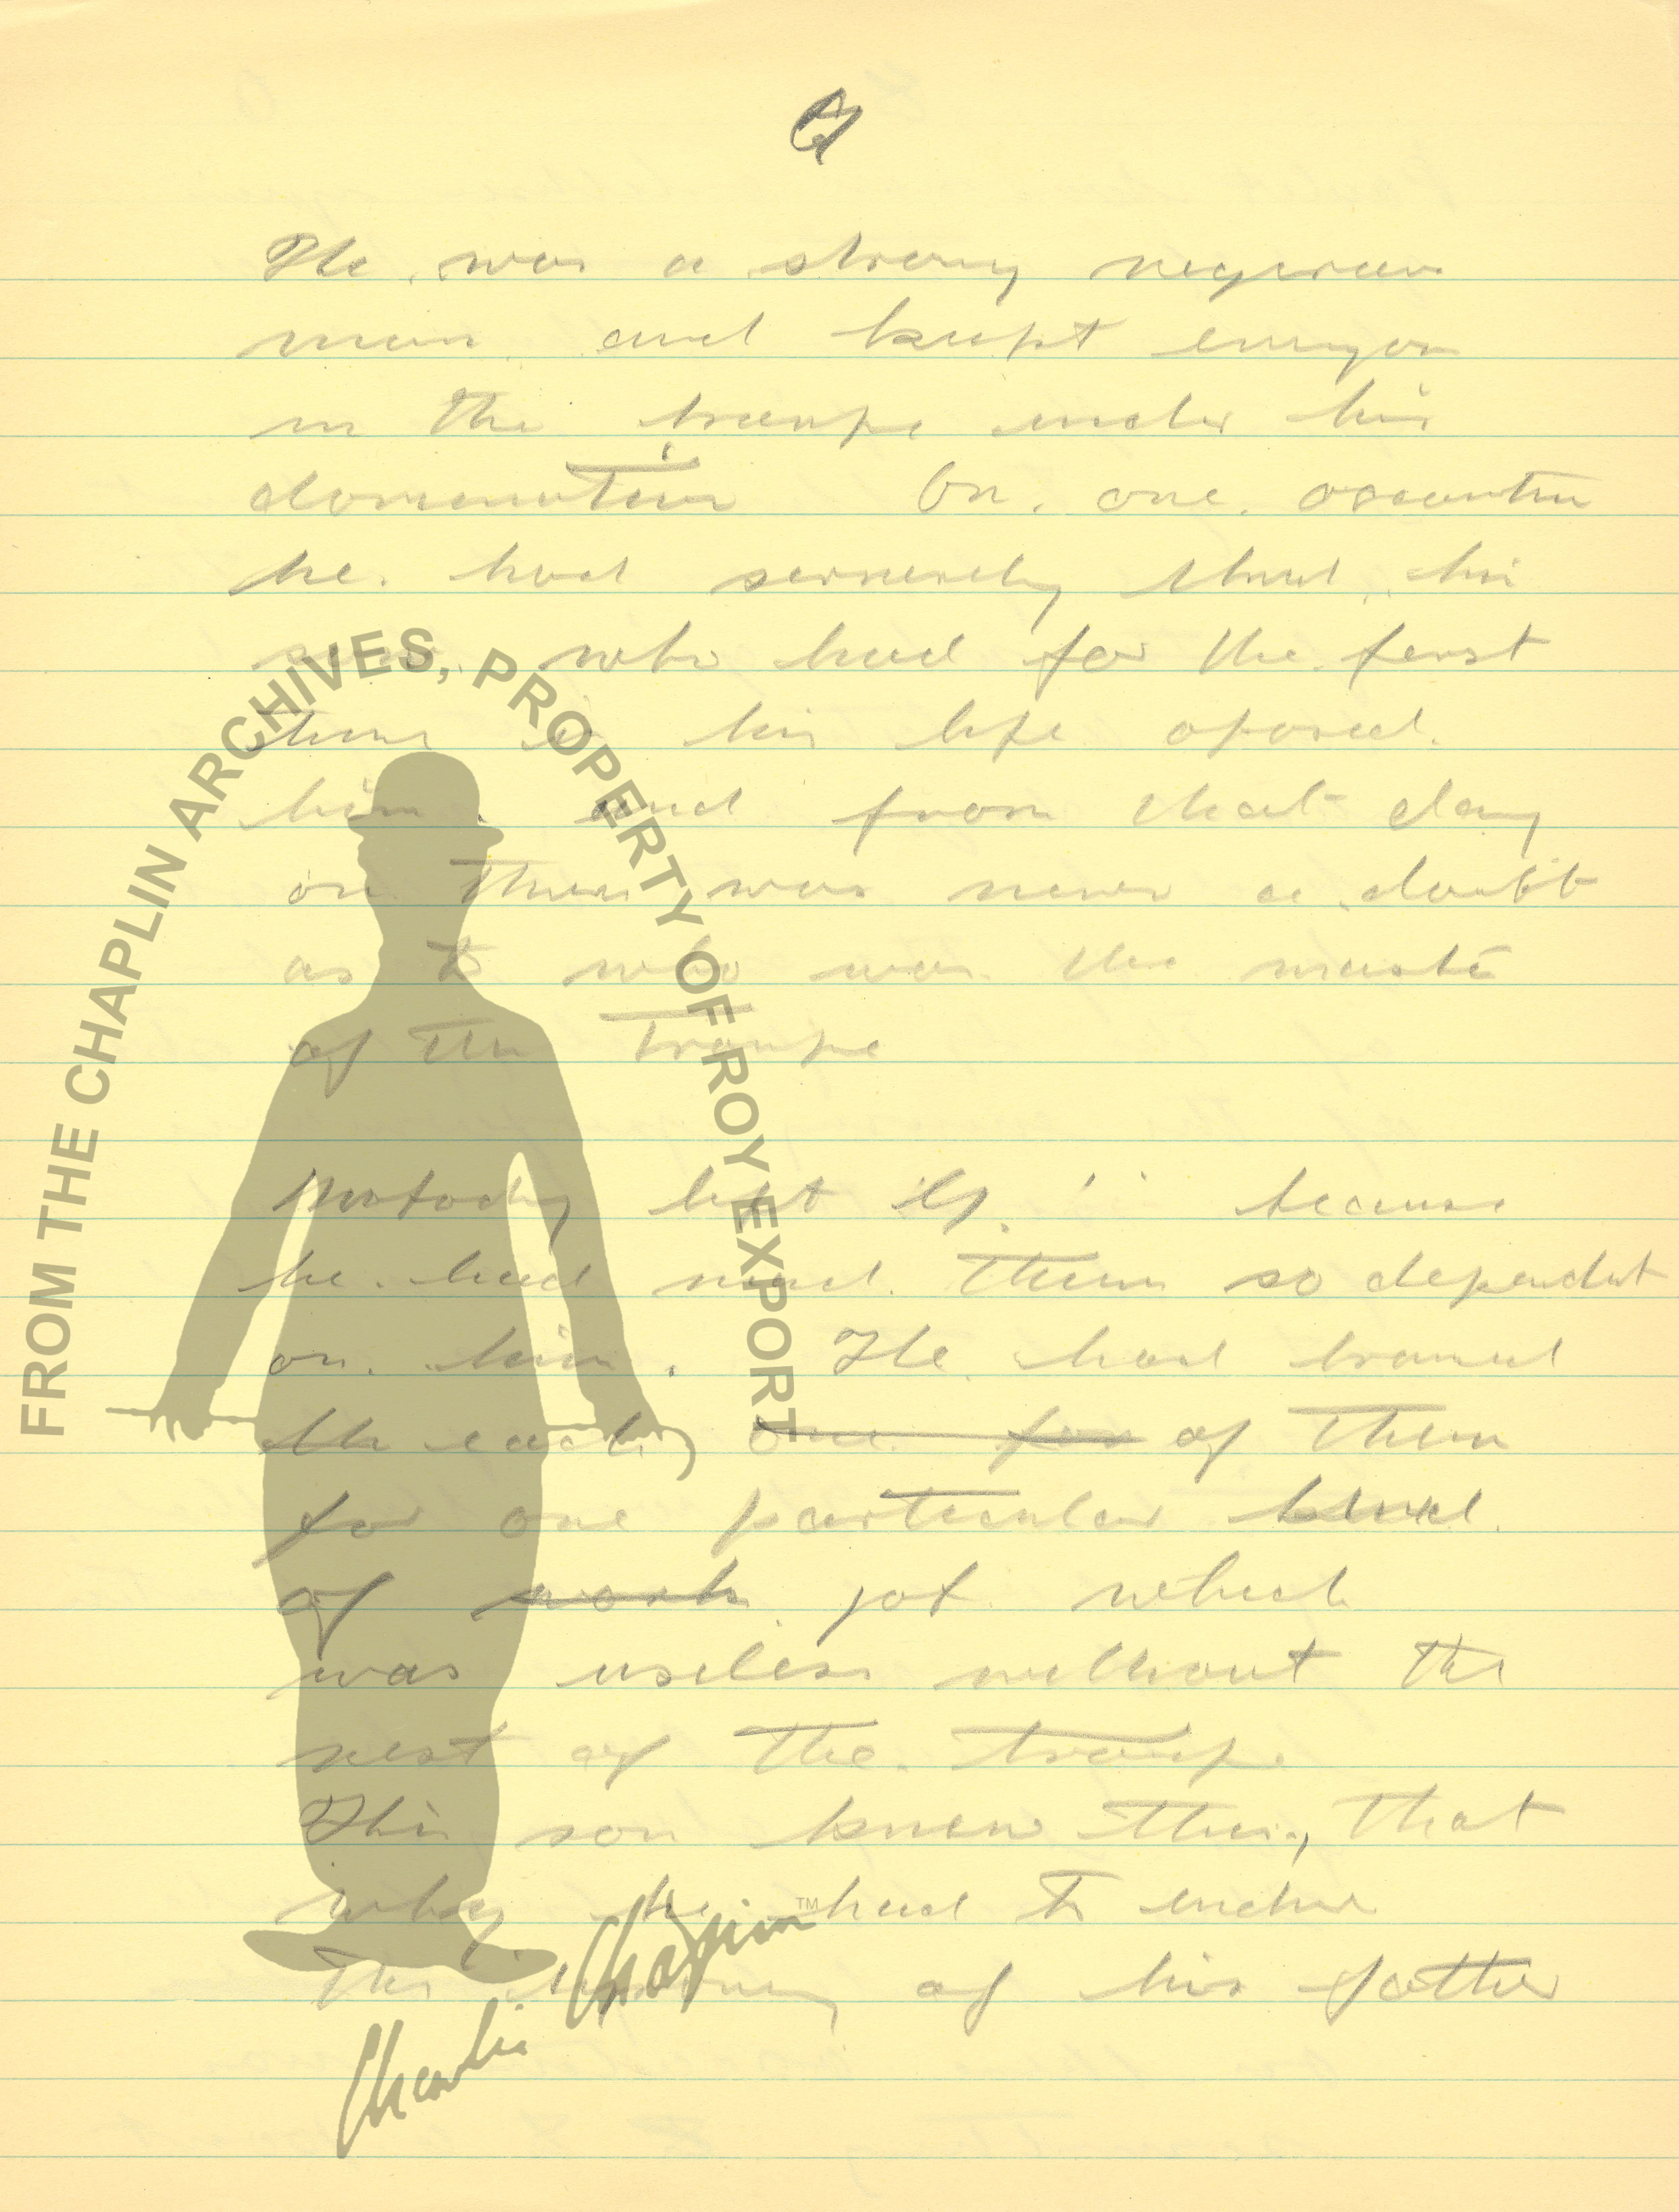 He was a strong
man and kept
in the troupe under his
domination On one occasion
he had severely his
son who had for the first
time in his life oposed
him and from that day
on there was never a doubt
as to who was the master
of the troupe
Nobody left because
he had made them so dependent
on him. He had trained
the each one for of them
for one particular kind
of work job which
was useless without the
rest of the troupe
This son knew this, that
why he had to endure
the of his father
FROM THE CHAPLIN ARCHIVES, PROPERTY OF ROY EXPORT
Charlie Chaplin™